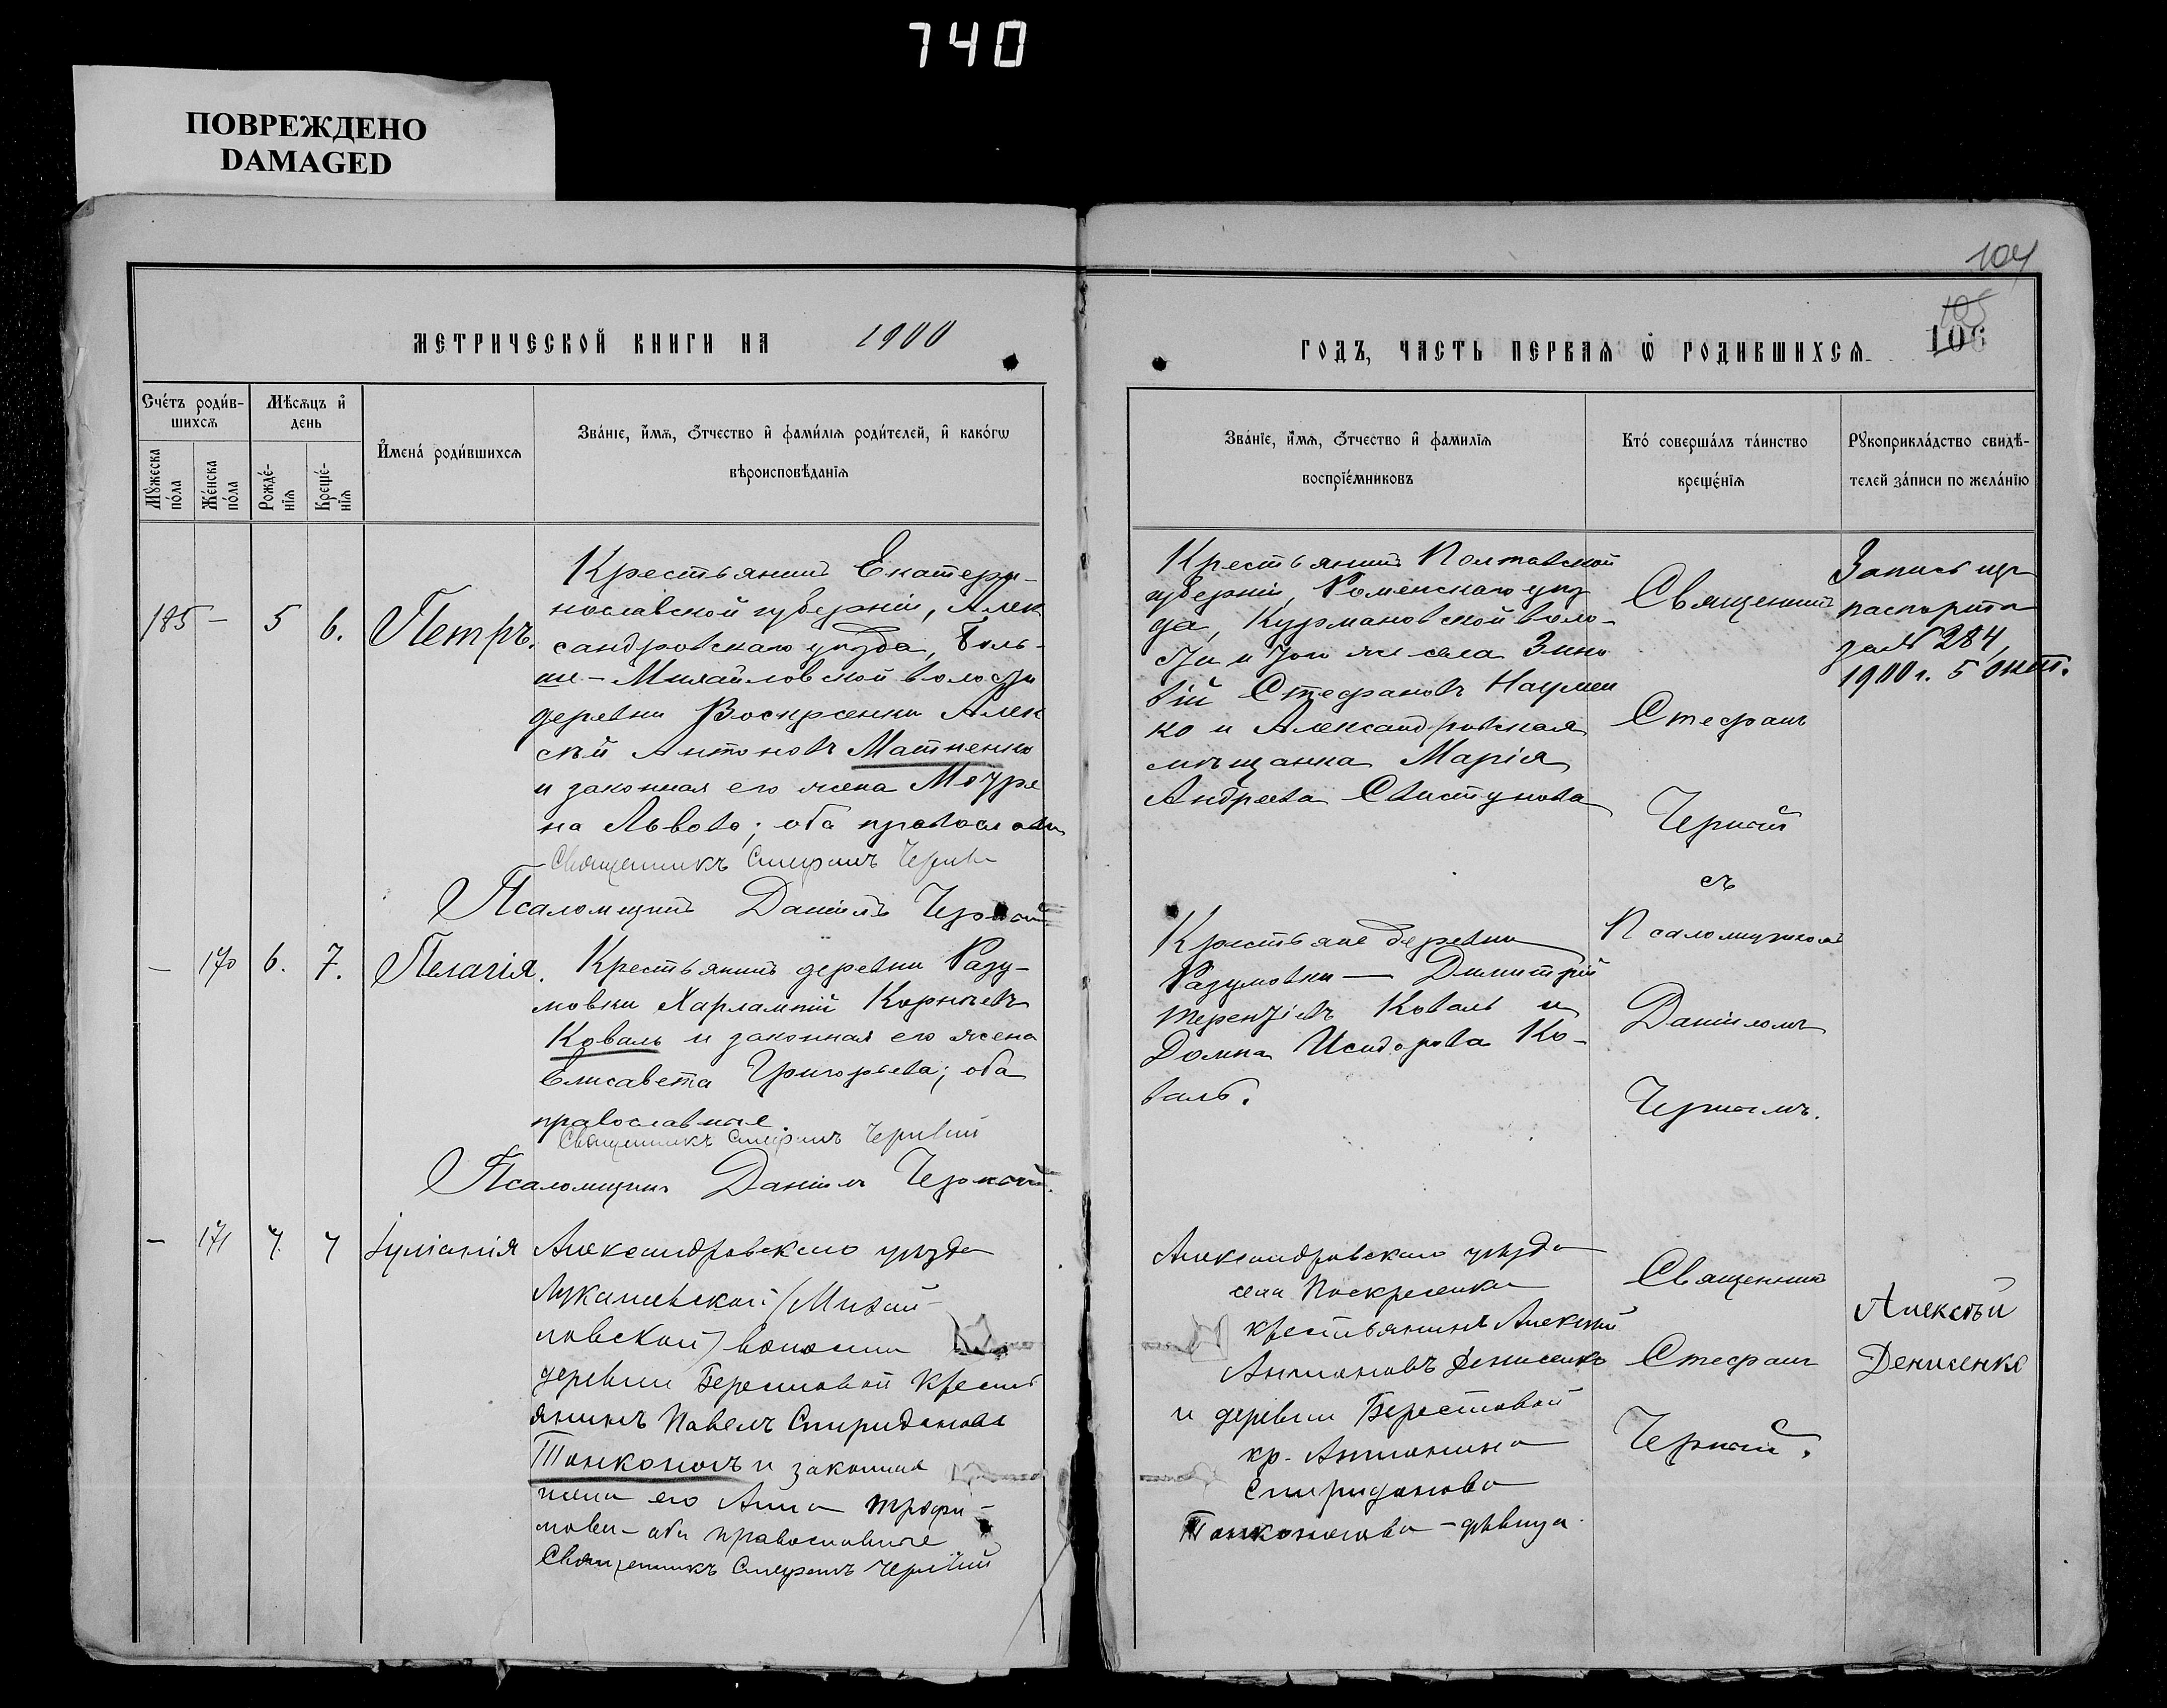 740
ПОВРЕЖДЕНО
DAMAGED
104
105
106
МЕТРИЧЕСКОЙ КНИГИ НА 1900
ГОДЪ, ЧАСТЬ ПЕРВАЯ Ѿ РОДИВШИХСЯ
Сче́тъ роди́в-
шихсѧ
Мѣсѧцъ и҆
день
Мꙋжеска по́ла
Же́нска по́ла
Рожде́-
нїѧ
Креще́-
нїѧ
И҆мена́ роди́вшихсѧ
Зва́нїе, и҆́мѧ, ѻ҆́тчество и҆ фами́лїѧ роди́телей, и҆ како́гѡ
вѣроисповѣ́данїѧ
Зва́нїе, и҆́мѧ, ѻ҆́тчество и҆ фами́лїѧ
воспрїе́мниковъ
Кто́ соверша́лъ та́инство
креще́нїѧ
Рꙋкоприкла́дство свидѣ́-
телей за́писи по жела́нїю
185 - 5 6. Петръ.
Крестьянинъ Екатери-
нославской губерніи, Алек
сандровскаго уѣзда, Боль-
ше-Михайловской волости
деревни Воскресенки Алек
сѣй Антоновъ Матпенко
и законная его жена Мотро
на Львова; оба православн
Священникъ Стефанъ Черный
Псаломщикъ Даніилъ Черный
Крестьянинъ Полтавской
губерніи, Роменскаго уѣз
да, Курмановской воло-
сти и той же села Зино
вій Стефановъ Наумен
ко и Александровская
мѣщанка Марія
Андреева Свистунова
Священникъ
Стефанъ
Черный
съ
Псаломщикомъ
Даніиломъ
Чернымъ.
Запись из
паспорта
за № 284,
1900 г. 5 окт.
- 170 6. 7. Пелагія.
Крестьянинъ деревни Разу-
мовки Харлампій Корнѣевъ
Коваль и законная его жена
Елисавета Григорьева; оба
православные.
Священникъ Стефанъ Черный
Псаломщикъ Даніилъ Черный.
Крестьяне деревни
Разумовки — Димитрій
Терентіевъ Коваль и
Домна Исидорова Ко-
валь.
- 171 7. 7 Іуліанія
Александровскаго уѣзда
Лукашевской (Михай-
ловской) волости
деревни Берестовой крест
янинъ Павелъ Спиридоновъ
Тонконогъ и законная
жена его Анна Трофи-
мова - оба православные
Священникъ Стефанъ Черный
Александровскаго уѣзда
села Воскресенки
крестьянинъ Алексѣй
Антоновъ Денисенко
и деревни Берестовой
кр. Антонина
Спиридонова
Тонконогова - дѣвица
Священникъ
Стефанъ
Черный.
Алексѣй
Денисенко